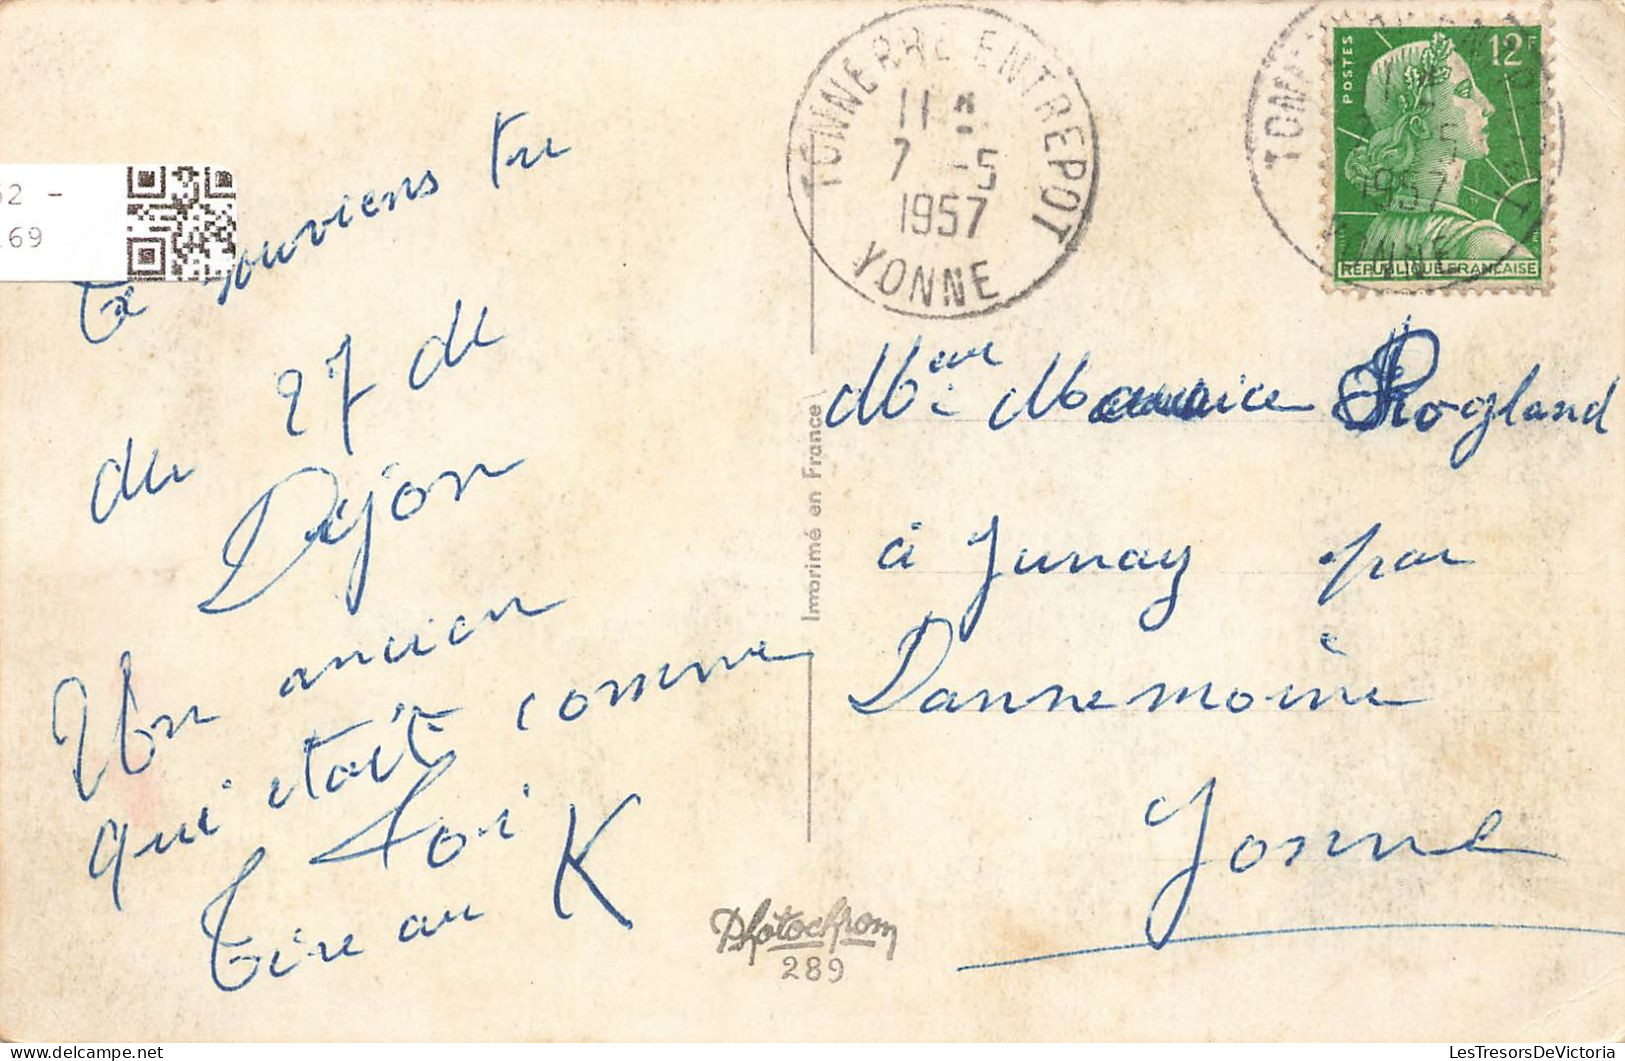 52 -
169
Te souviens tu
du 27 de
Dijon
Un ancien
qui était comme
toi
tire au K
TONNERRE ENTREPOT
11 H
7 -5
1957
YONNE
POSTES
12F
REPUBLIQUE FRANÇAISE
TONNERRE ENTREPOT
7 -5
1957
YONNE
Imprimé en France
Maurice Rogland
à Junay par
Dannemoine
Yonne
Photochrom
289
LesTresorsDeVictoria